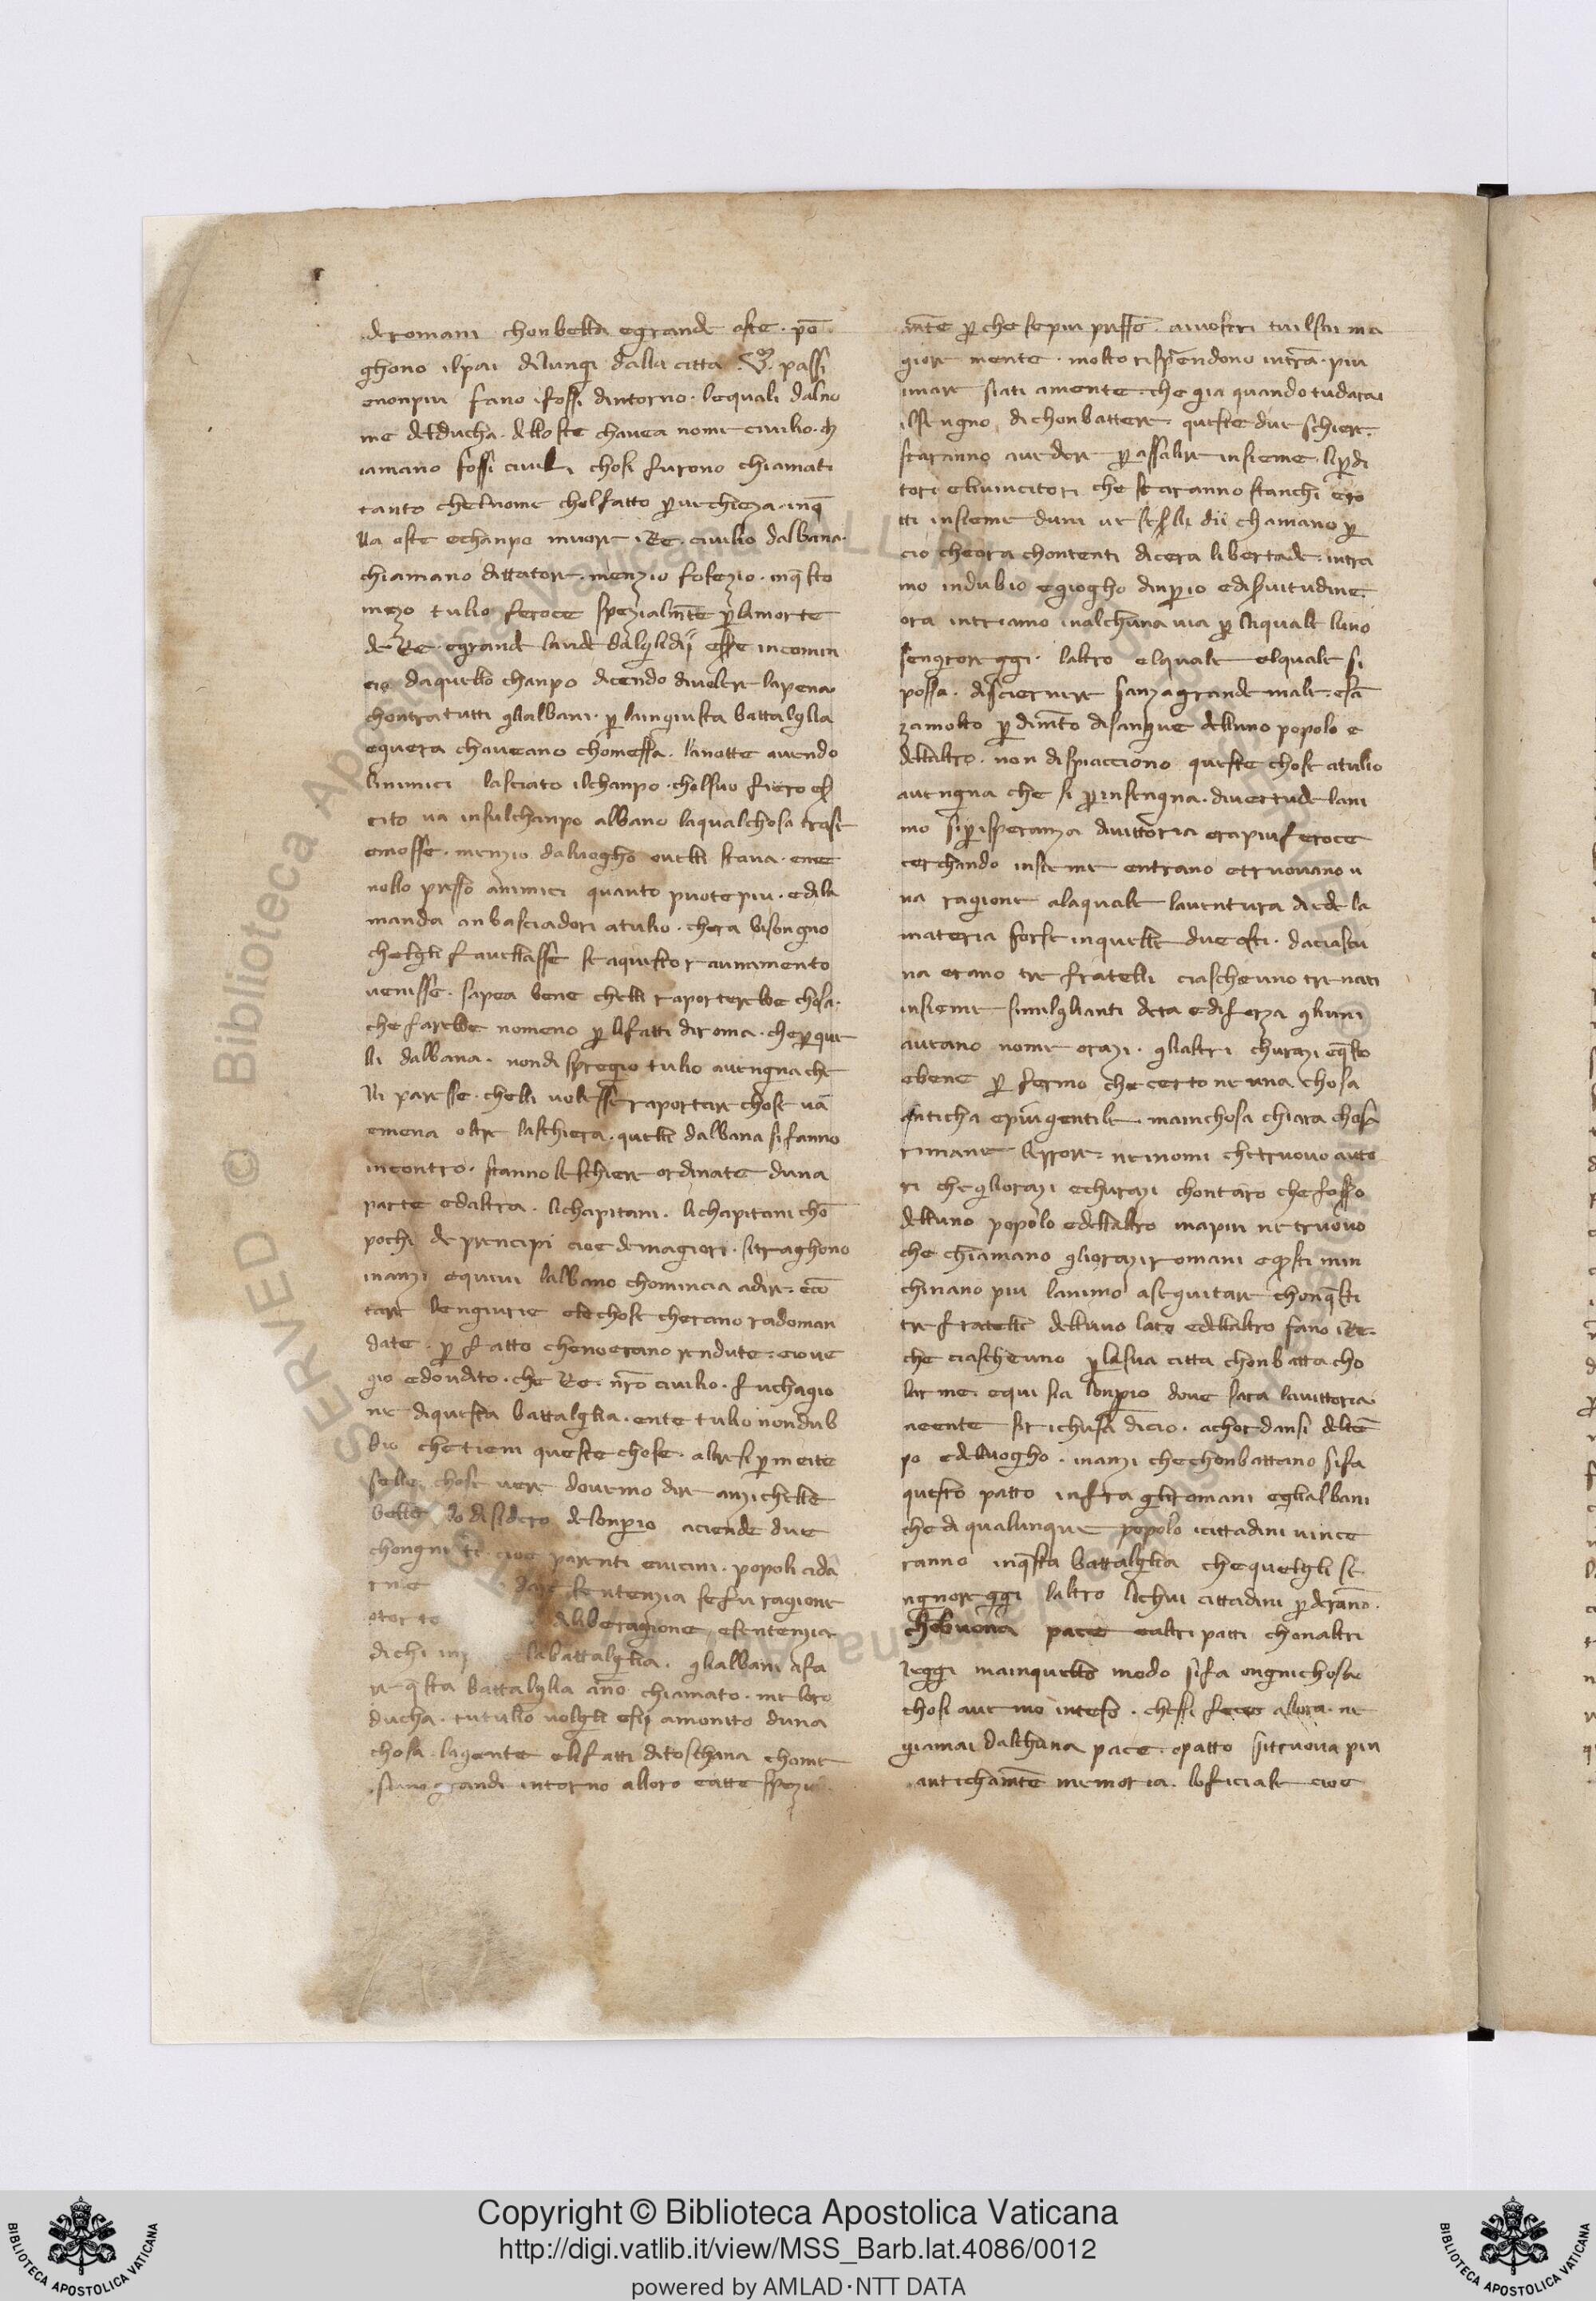 de romani chonbella egrande oste · po᷃
ghono ilpai dilungi dalla citta · V · passi
enonpiu fano ifossi dintorno · lequali dalno
me del ducha · delloste chauea nome ciuilio · ch
iamano fossi ciuili chosi furono chiamati
tanto chelnome cholfatto ꝑ uechieza · inq̄
lla oste echanpo muore iRe · ciuilio dalbana ·
chiamano dittatore · menzio fofezio · inq̄sto
mezo tulio feroce spezialmēte ꝑ lamorte
de Re · egrande laude dalglidij esse incomin
cio daquello chanpo dicendo diuolere lapena
chontra tutti glialbani · ꝑ laingiusta battalglia
equera chaueano chomessa · lanotte auendo
linimici lasciato ilchanpo · cholsuo fiero es
cito ua insulchanpo albano laqualchosa trasse
emosse · menzio daluogho ouelli staua · eme
nollo presso animici quanto puote piu · edila
manda anbasciadori atulio · chera bisongno
chelgli fauellasse seaquesto raunamento
uenisse · sapea bene chelli raporterebbe chosa ·
che farebbe nomeno ꝑ lifatti diroma · che ꝑ que
lli dalbana · nondispregio tulio auengna che
lli paresse · chelli uolesse raportare chose uā
emena oltre laschiera · quelli dalbana sifanno
incontro · stanno leschiere ordinate duna
parte edaltra · lichapitani · lichapitani chō
pochi de prencipi cioe demagiori · sitraghono
inanzi equiui lalbano chomincia adire · ecō
tare lengiurie elechose cherano radoman
date · ꝑ fatto chenoerano rendute · eioue
gio edoudito · che Re · nr̄o ciuilio · fu chagio
ne diquesta battalglia · ente tulio nondub
bio chetieni queste chose · altresi ꝑ mette
selle chose uere douemo dire anzichelle
belle lo disidero delonꝑio aciende due
chongni ti · cioe parenti euicini · popoli ada
rme sentenzia sefu ragione
otorto diliberagione, esentenzia
dichi labattalglia · glialbani afa
re q̄sta battalglia ano chiamato · me loro
ducha · tutullo uolgli essi amonito duna
chosa · lagente elifatti ditoschana chome
siano grandi intorno alloro eatte spezial
mēte ꝑ che sepiu presso · auuostri tuilsai ma
gior mente · molto rispendono intrā · piu
imare siati amente · che gia quando tudarai
ilsengno dichonbattere · queste due schiere ·
staranno auedere ꝑ assalire insieme · liꝑdi
tori eliuincitori che staranno stanchi ero
tti insieme dun uesesli dii chamano ꝑ
cio cheora chontenti dicera libertade · intra
mo indubio egiogho dinꝑio edisꝑuitudine
ora intriamo inalchuna uia ꝑ laquale luno
sengnoreggi · laltro elquale elquale si
possa · discernere sanza grande male · esā
zamolto ꝑ dimēto disangue delluno popolo e
dellaltro · non dispiacciono queste chose atulio
auengna che si ꝑ insengna · diuertude lani
mo siꝑ isperanza diuittoria erapiu feroce
cerchando insieme entrano etruouano u
na ragione alaquale lauentura diede la
materia forse inquelle due osti · daciascu
na erano tre fratelli ciascheuno trenati
insieme similglianti deta edi forza gliuni
aueano nome orazi · glialtri churazi eq̄sto
ebene ꝑ fermo che certo neuna chosa
anticha epiugentile · mainchosa chiara chosi
rimane lerrore · nenomi chetruouo auto
ri chegliorazi echurazi chontaro che fosso
delluno popolo edellaltro mapiu netruouo
che chiamano gliorazi romani equesti min
chinano piu lanimo aseguitare chonq̄sti
tre fratelli delluno lato edellaltro fano iRe ·
che ciascheuno ꝑ lasua citta chonbatta cho
larme · equi sia lonꝑio doue sara lauittoria
neente sirichusa dicio · achordansi deltē
po edelluogho · inanzi chechonbattano sifa
questo patto infra gliromani eglialbani
che di qualunque popolo icittadini uince
ranno inq̄sta battalglia chequelgli se
ngnoreggi laltro lichui cittadini ꝑderāno ·
chebuona pace ealtri patti chonaltri
leggi mainquello modo sifa ongnichosa
chosi auemo inteso · chessi fece allora · ne
giamai dalchuna pace · opatto sitruoua piu
antichamēte memoria · loficiale cioe
Copyright © Biblioteca Apostolica Vaticana
http://digi.vatlib.it/view/MSS_Barb.lat.4086/0012
powered by AMLAD·NTT DATA
BIBLIOTECA APOSTOLICA VATICANA
BIBLIOTECA APOSTOLICA VATICANA